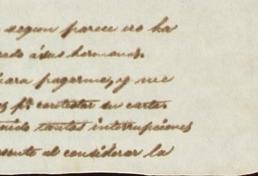 segun parece no ha
á sus hermanos.
para pagarme, y me
pr. contestar su carta
tantas interrupciones
al considerar la